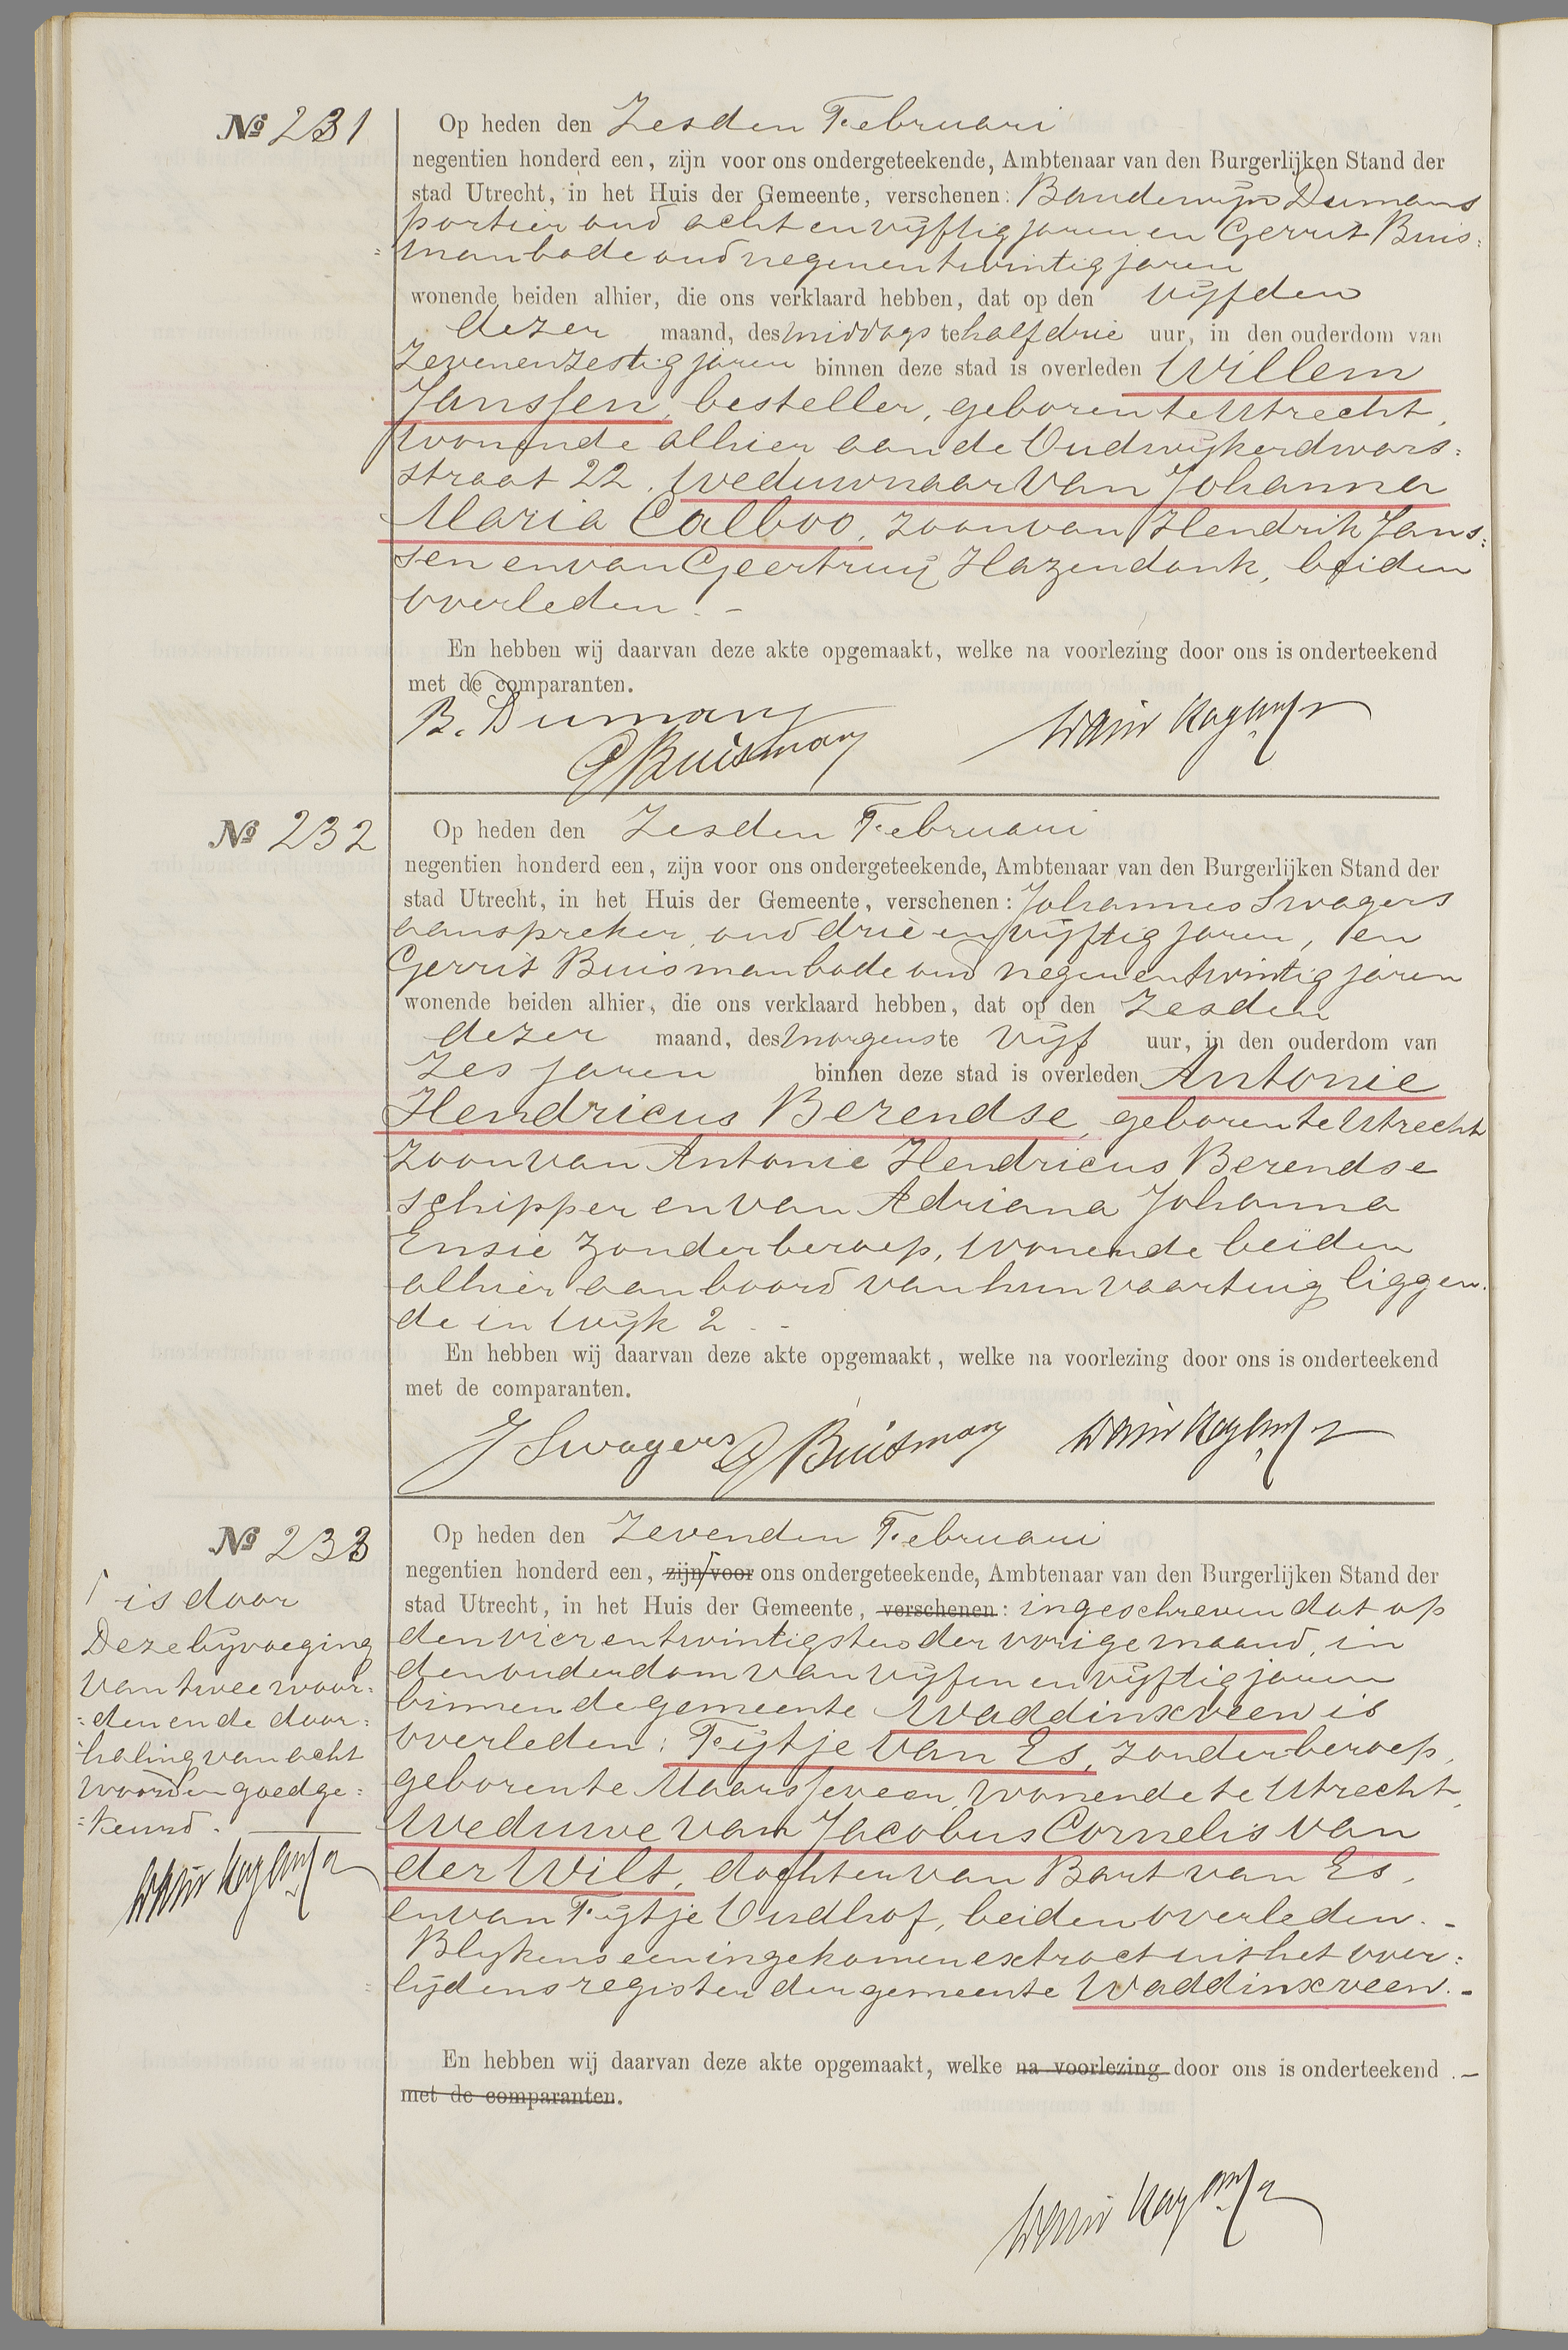 № 231
Op heden den Zesden Februari
negentien honderd een, zijn voor ons ondergeteekende, Ambtenaar van den Burgerlijken Stand der
stad Utrecht, in het Huis der Gemeente, verschenen: Boudewijn Dumans
portier oud acht en vijftig jaren en Gerrit Buis:
=man bode oud negenentwintig jaren
wonende beiden alhier, die ons verklaard hebben, dat op den vijfden
dezer maand, des middags te half drie uur, in den ouderdom van
zevenenzestig jaren binnen deze stad is overleden Willem
Janssen, besteller, geboren te Utrecht,
wonende alhier aan de Oudwijkerdwars:
straat 22. weduwnaar van Johanna
Maria Calboo, zoon van Hendrik Jans:
sen en van Geertruij Hazendonk, beiden
overleden. -
En hebben wij daarvan deze akte opgemaakt, welke na voorlezing door ons is onderteekend
met de comparanten.
B. Dumans
G Buisman
№ 232
Op heden den Zesden Februari
negentien honderd een, zijn voor ons ondergeteekende, Ambtenaar van den Burgerlijken Stand der
stad Utrecht, in het Huis der Gemeente, verschenen: Johannes Swagers
aanspreker, oud drie en vijftig jaren, en
Gerrit Buisman bode oud negenentwintig jaren
wonende beiden alhier, die ons verklaard hebben, dat op den zesden
dezer maand, des morgens te vijf uur, in den ouderdom van
zes jaren binnen deze stad is overleden Antonie
Hendricus Berendse, geboren te Utrecht
zoon van Antonie Hendricus Berendse
schipper en van Adriana Johanna
Ensie zonder beroep, wonende beiden
alhier aan boord van hun vaartuig liggen:
de in wijk 2. -
En hebben wij daarvan deze akte opgemaakt, welke na voorlezing door ons is onderteekend
met de comparanten.
J Swagers G Buisman
№ 233
Op heden den Zevenden Februari
negentien honderd een, zijn voor ons ondergeteekende, Ambtenaar van den Burgerlijken Stand der
stad Utrecht, in het Huis der Gemeente, verschenen: ingeschreven dat op
den vierentwintigsten der vorige maand, in
den ouderdom van vijfenenvijftig jaren
binnen de gemeente Waddinxveen is
overleden: Fijtje van Es, zonder beroep,
geboren te Maarsseveen, wonende te Utrecht,
Weduwe van Jacobus Cornelis van
der Wilt, dochter van Bart van Es,
en van Fijtje Oudhof, beiden overleden. -
Blijkens een ingekomen extract uit het over:
lijdensregister der gemeente Waddinxveen. -
En hebben wij daarvan deze akte opgemaakt, welke na voorlezing door ons is onderteekend. -
met de comparanten.
is door
Deze bijvoeging
van twee woor:
=den en de door:
=haling van acht
woorden goedge:
=keurd.